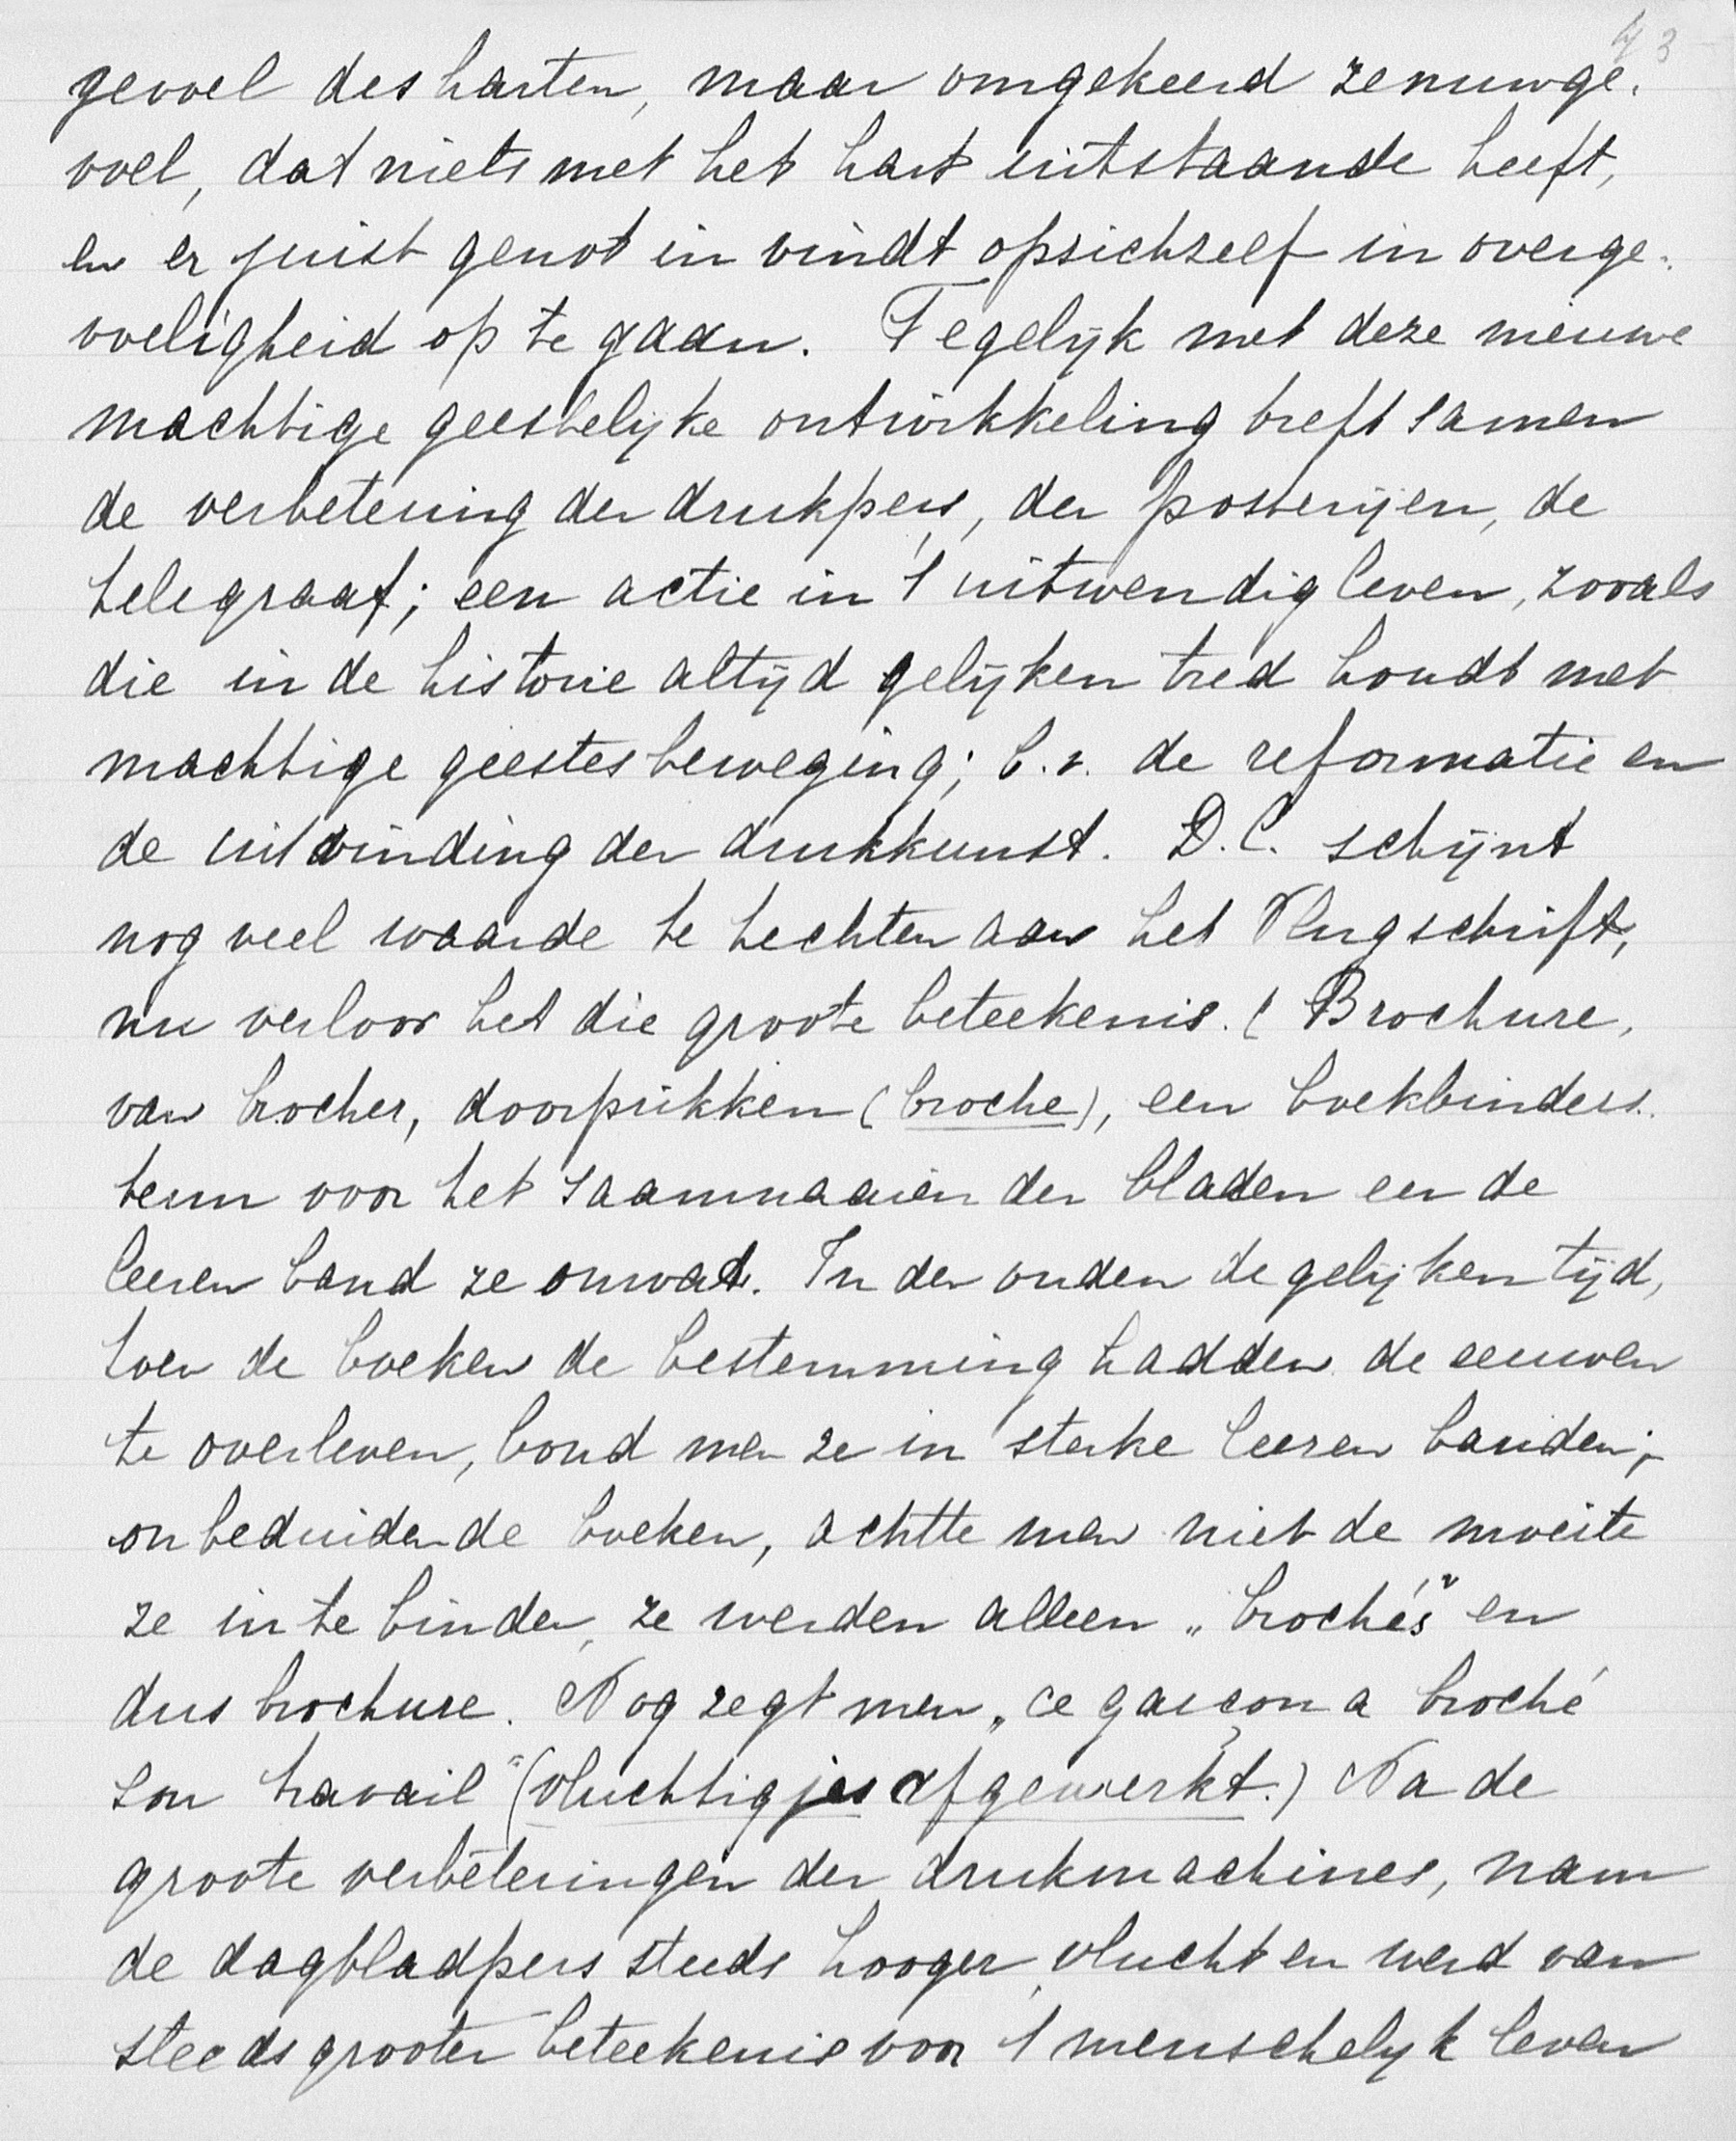 43
gevoel des harten, maar omgekeerd zenuwge-
voel, dat niets met het hart uitstaande heeft,
en er juist genot in vindt opzichzelf in overge-
voeligheid op te gaan. Tegelijk met deze nieuwe
machtige geestelijke ontwikkeling treft samen
de verbetering der drukpers, der posterijen, de
telegraaf; een actie in 't uitwendig leven, zooals
die in de historie altijd gelijken tred houdt met
machtige geestesbeweging; b.v. de reformatie en
de uitvinding der drukkunst. D.C. schijnt
nog veel waarde te hechten aan het Vlugschrift,
nu verloor het die groote beteekenis. (Brochure,
van brocher, doorprikken (broche), een boekbinders
term voor het saamnaaien der bladen eer de
leeren band ze omvat. In den ouden degelijken tijd,
toen de boeken de bestemming hadden de eeuwen
te overleven, bond men ze in sterke leeren banden;
onbeduidende boeken, achtte men niet de moeite
ze in te binden, ze werden alleen „brochés" en
dus brochure. Nog zegt men „ce garçon a broché
son travail" (vluchtigjes afgewerkt.) Na de
groote verbeteringen der drukmachines, nam
de dagbladpers steeds hooger vlucht en werd van
steeds grooter beteekenis voor 't menschelijk leven